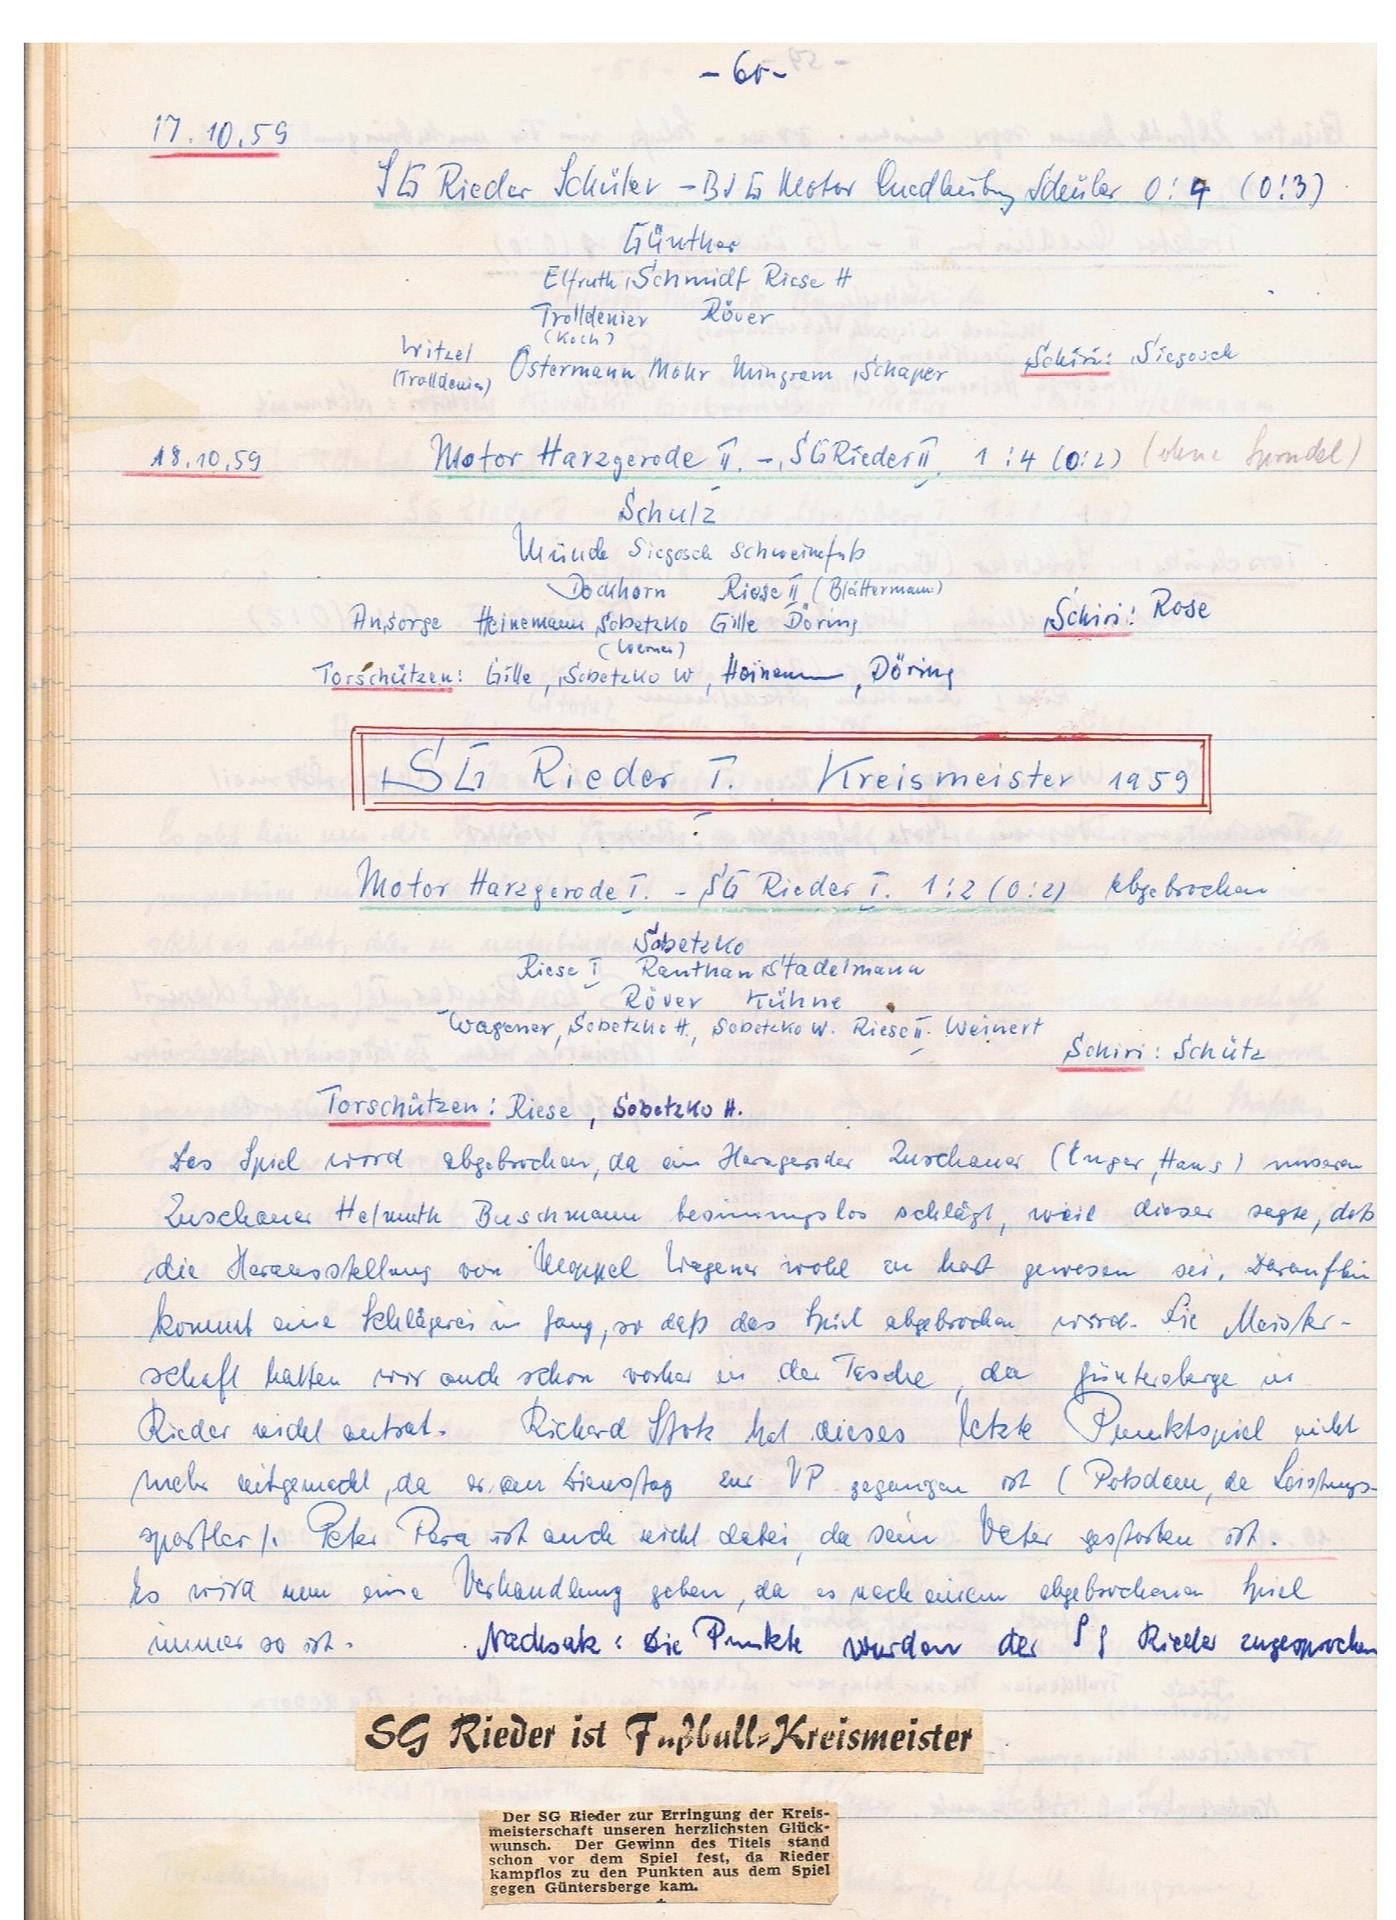 - 60 -
17.10.59
SG Rieder Schüler - BSG Motor Quedlinburg Schüler 0:4 (0:3)
Günther
Elfruth, Schmidt Riese H
Trolldenier Röver
(Koch)
Witzel Ostermann Mohr Mingram, Schaper Schiri: Siegosch
(Trolldenier)
18.10.59 Motor Harzgerode II. - SG Rieder II. 1:4 (0:2) (ohne Spindel)
Schulz
Münch Siegosch Schweinefuß
Dockhorn Riese II (Blättermann)
Ansorge Heinemann Sobetzko Gille Döring Schiri: Rose
(Werner)
Torschützen: Gille, Sobetzko W, Heinemann, Döring
SG Rieder I. Kreismeister 1959
Motor Harzgerode I. - SG Rieder I. 1:2 (0:2) abgebrochen
Sobetzko
Riese I Ranthan Stadelmann
Röver Kühne
Wagener, Sobetzko H., Sobetzko W. Riese II. Weinert
Schiri: Schütz
Torschützen: Riese, Sobetzko H.
Das Spiel wird abgebrochen, da ein Harzgeroder Zuschauer (Unger, Hans) unseren
Zuschauer Helmuth Buschmann besinnungslos schlägt, weil dieser sagte, daß
die Herausstellung von Wagener wohl zu hart gewesen sei. Daraufhin
kommt eine Schlägerei in Gang, so daß das Spiel abgebrochen wird. Die Meister-
schaft hatten wir auch schon vorher in der Tasche, da Güntersberge in
Rieder nicht antrat. Richard Stok hat dieses letzte Punktspiel nicht
mehr mitgemacht, da er am Dienstag zur VP gegangen ist (Potsdam, da Leistungs-
sportler). Peter Para ist auch nicht dabei, da sein Vater gestorben ist.
Es wird nun eine Verhandlung geben, da es nach einem abgebrochenen Spiel
immer so ist. Nachsatz: Die Punkte wurden der SG Rieder zugesprochen
SG Rieder ist Fußball-Kreismeister
Der SG Rieder zur Erringung der Kreis-
meisterschaft unseren herzlichsten Glück-
wunsch. Der Gewinn des Titels stand
schon vor dem Spiel fest, da Rieder
kampflos zu den Punkten aus dem Spiel
gegen Güntersberge kam.